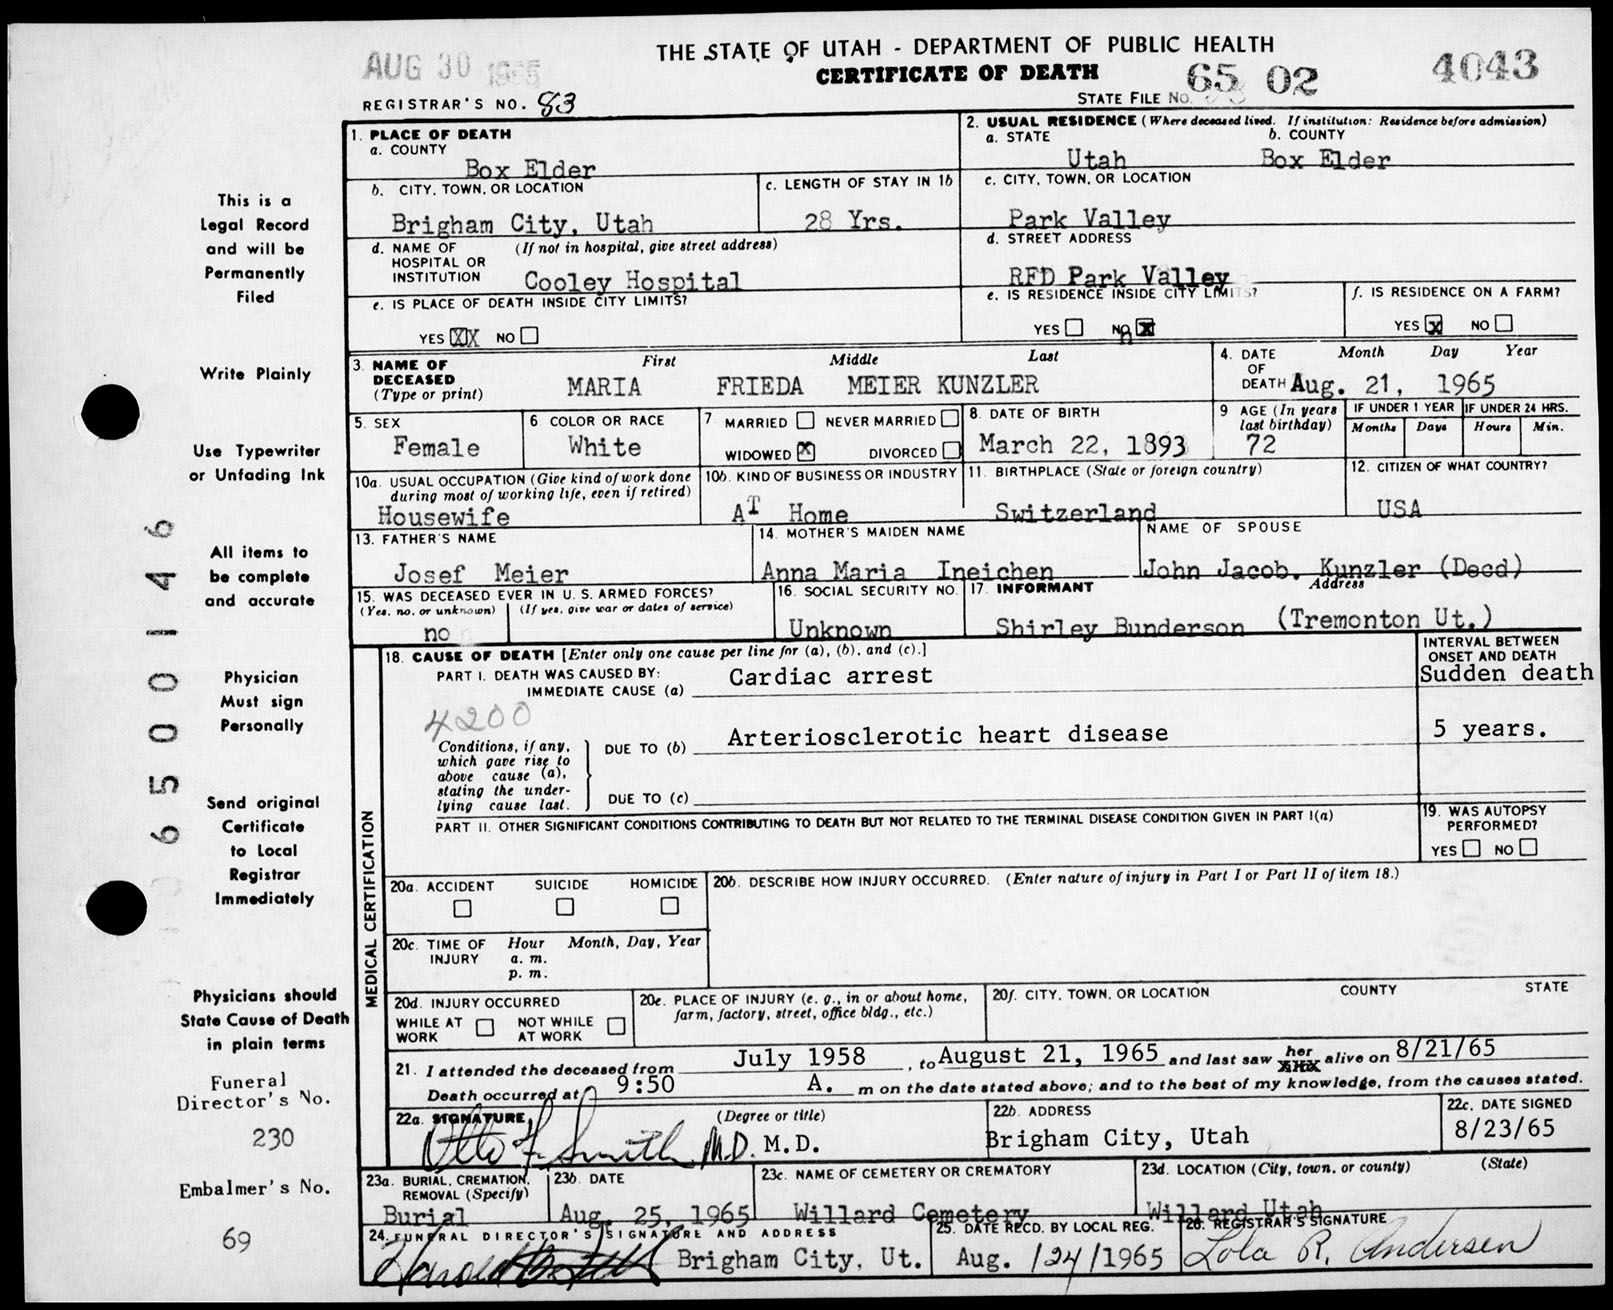 THE STATE OF UTAH - DEPARTMENT OF PUBLIC HEALTH
AUG 30 1965
CERTIFICATE OF DEATH
65 02 4043
REGISTRAR'S NO. 83
STATE FILE NO.
1. PLACE OF DEATH
a. COUNTY
Box Elder
2. USUAL RESIDENCE (Where deceased lived. If institution: Residence before admission)
a. STATE b. COUNTY
Utah Box Elder
b. CITY, TOWN, OR LOCATION
Brigham City, Utah
c. LENGTH OF STAY IN 1b
28 Yrs.
c. CITY, TOWN, OR LOCATION
Park Valley
d. NAME OF HOSPITAL OR INSTITUTION (If not in hospital, give street address)
Cooley Hospital
d. STREET ADDRESS
RFD Park Valley
e. IS PLACE OF DEATH INSIDE CITY LIMITS?
YES XX NO
e. IS RESIDENCE INSIDE CITY LIMITS?
YES NO X
f. IS RESIDENCE ON A FARM?
YES X NO
3. NAME OF DECEASED (Type or print)
First Middle Last
MARIA FRIEDA MEIER KUNZLER
4. DATE OF DEATH
Month Day Year
Aug. 21, 1965
5. SEX
Female
6 COLOR OR RACE
White
7 MARRIED NEVER MARRIED
WIDOWED X DIVORCED
8. DATE OF BIRTH
March 22, 1893
9 AGE (In years last birthday)
72
IF UNDER 1 YEAR
Months Days
IF UNDER 24 HRS.
Hours Min.
10a. USUAL OCCUPATION (Give kind of work done during most of working life, even if retired)
Housewife
10b. KIND OF BUSINESS OR INDUSTRY
AT Home
11. BIRTHPLACE (State or foreign country)
Switzerland
12. CITIZEN OF WHAT COUNTRY?
USA
13. FATHER'S NAME
Josef Meier
14. MOTHER'S MAIDEN NAME
Anna Maria Ineichen
NAME OF SPOUSE
John Jacob. Kunzler (Decd)
15. WAS DECEASED EVER IN U. S. ARMED FORCES?
(Yes, no, or unknown) (If yes, give war or dates of service)
no
16. SOCIAL SECURITY NO.
Unknown
17. INFORMANT Address
Shirley Bunderson (Tremonton Ut.)
MEDICAL CERTIFICATION
18. CAUSE OF DEATH [Enter only one cause per line for (a), (b), and (c).]
INTERVAL BETWEEN ONSET AND DEATH
PART I. DEATH WAS CAUSED BY:
IMMEDIATE CAUSE (a) Cardiac arrest
Sudden death
4200
Conditions, if any, which gave rise to above cause (a), stating the underlying cause last.
DUE TO (b) Arteriosclerotic heart disease
5 years.
DUE TO (c)
PART II. OTHER SIGNIFICANT CONDITIONS CONTRIBUTING TO DEATH BUT NOT RELATED TO THE TERMINAL DISEASE CONDITION GIVEN IN PART I(a)
19. WAS AUTOPSY PERFORMED?
YES NO
20a. ACCIDENT SUICIDE HOMICIDE
20b. DESCRIBE HOW INJURY OCCURRED. (Enter nature of injury in Part I or Part II of item 18.)
20c. TIME OF INJURY Hour Month, Day, Year
a. m.
p. m.
20d. INJURY OCCURRED
WHILE AT WORK NOT WHILE AT WORK
20e. PLACE OF INJURY (e. g., in or about home, farm, factory, street, office bldg., etc.)
20f. CITY, TOWN, OR LOCATION COUNTY STATE
21. I attended the deceased from July 1958, to August 21, 1965 and last saw her alive on 8/21/65
Death occurred at 9:50 A. m on the date stated above; and to the best of my knowledge, from the causes stated.
22a. SIGNATURE (Degree or title)
Otto F. Smith M.D. M.D.
22b. ADDRESS
Brigham City, Utah
22c. DATE SIGNED
8/23/65
23a. BURIAL, CREMATION, REMOVAL (Specify)
Burial
23b. DATE
Aug. 25, 1965
23c. NAME OF CEMETERY OR CREMATORY
Willard Cemetery
23d. LOCATION (City, town, or county) (State)
Willard Utah
24. FUNERAL DIRECTOR'S SIGNATURE AND ADDRESS
Harold Brigham City, Ut.
25. DATE RECD. BY LOCAL REG.
Aug. /24/1965
26. REGISTRAR'S SIGNATURE
Lola R. Andersen
This is a
Legal Record
and will be
Permanently
Filed
Write Plainly
Use Typewriter
or Unfading Ink
All items to
be complete
and accurate
Physician
Must sign
Personally
Send original
Certificate
to Local
Registrar
Immediately
Physicians should
State Cause of Death
in plain terms
Funeral
Director's No.
230
Embalmer's No.
69
6500146